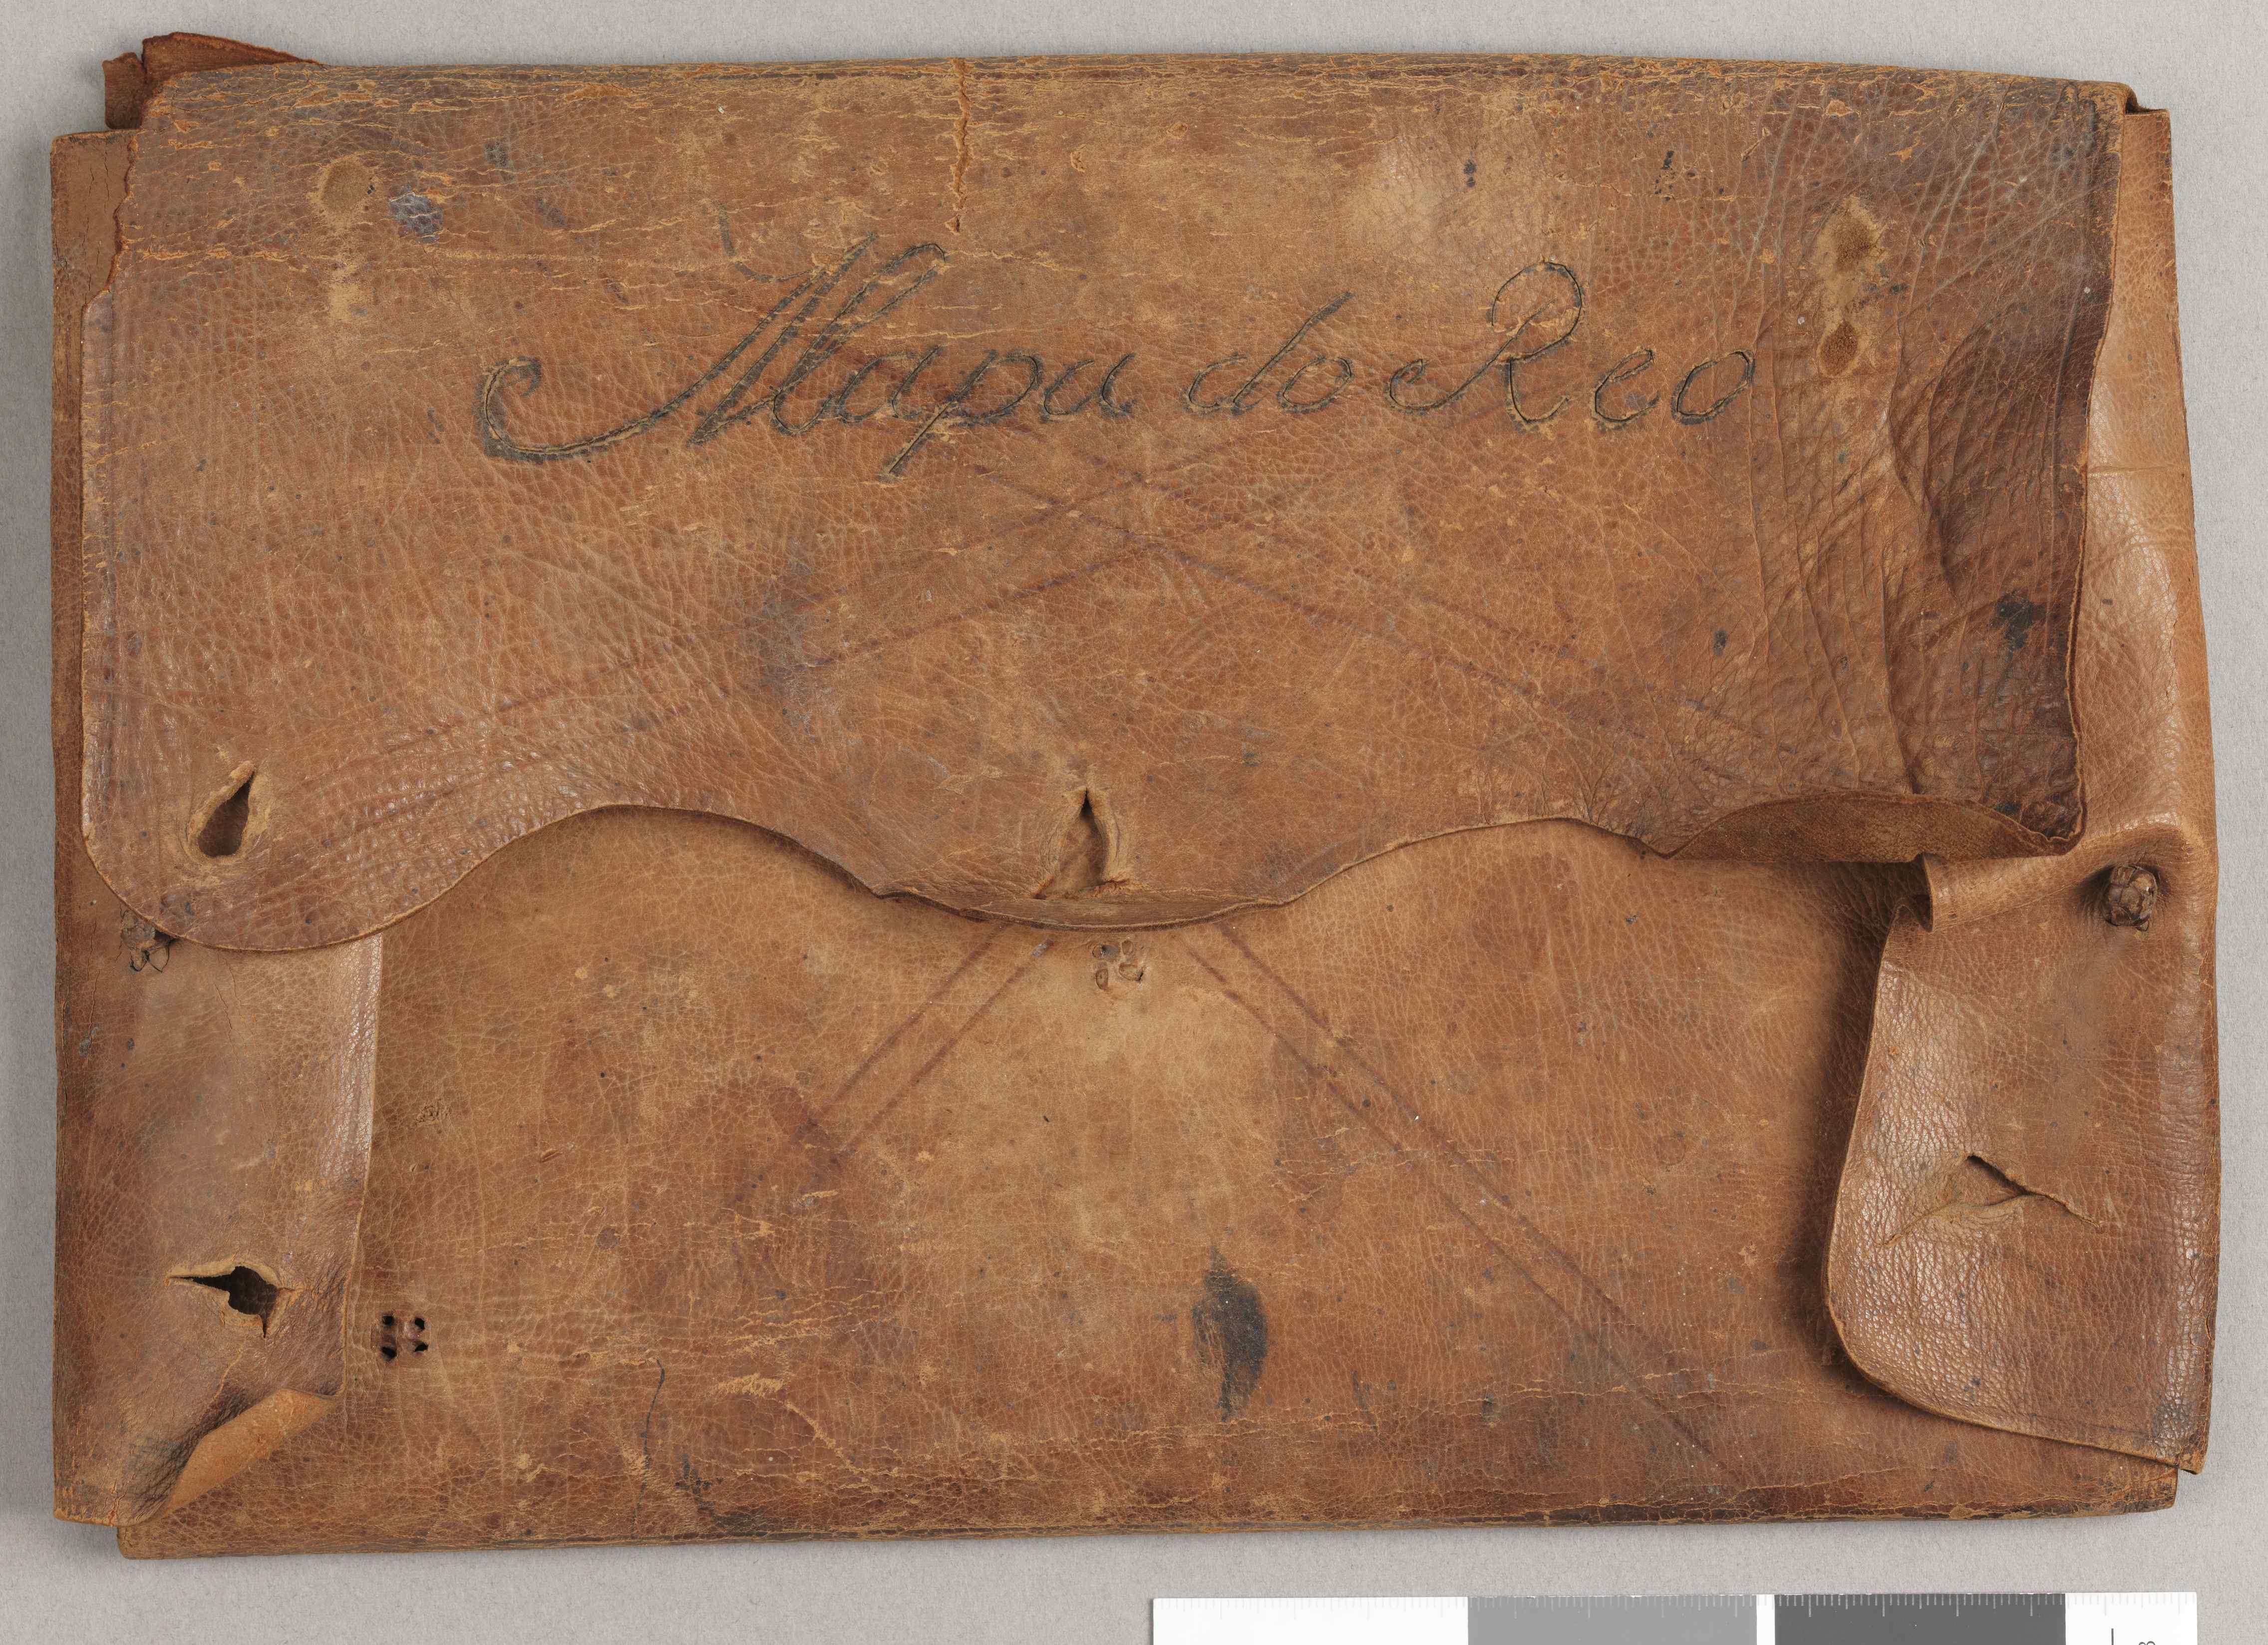 Mapa do Reo
8